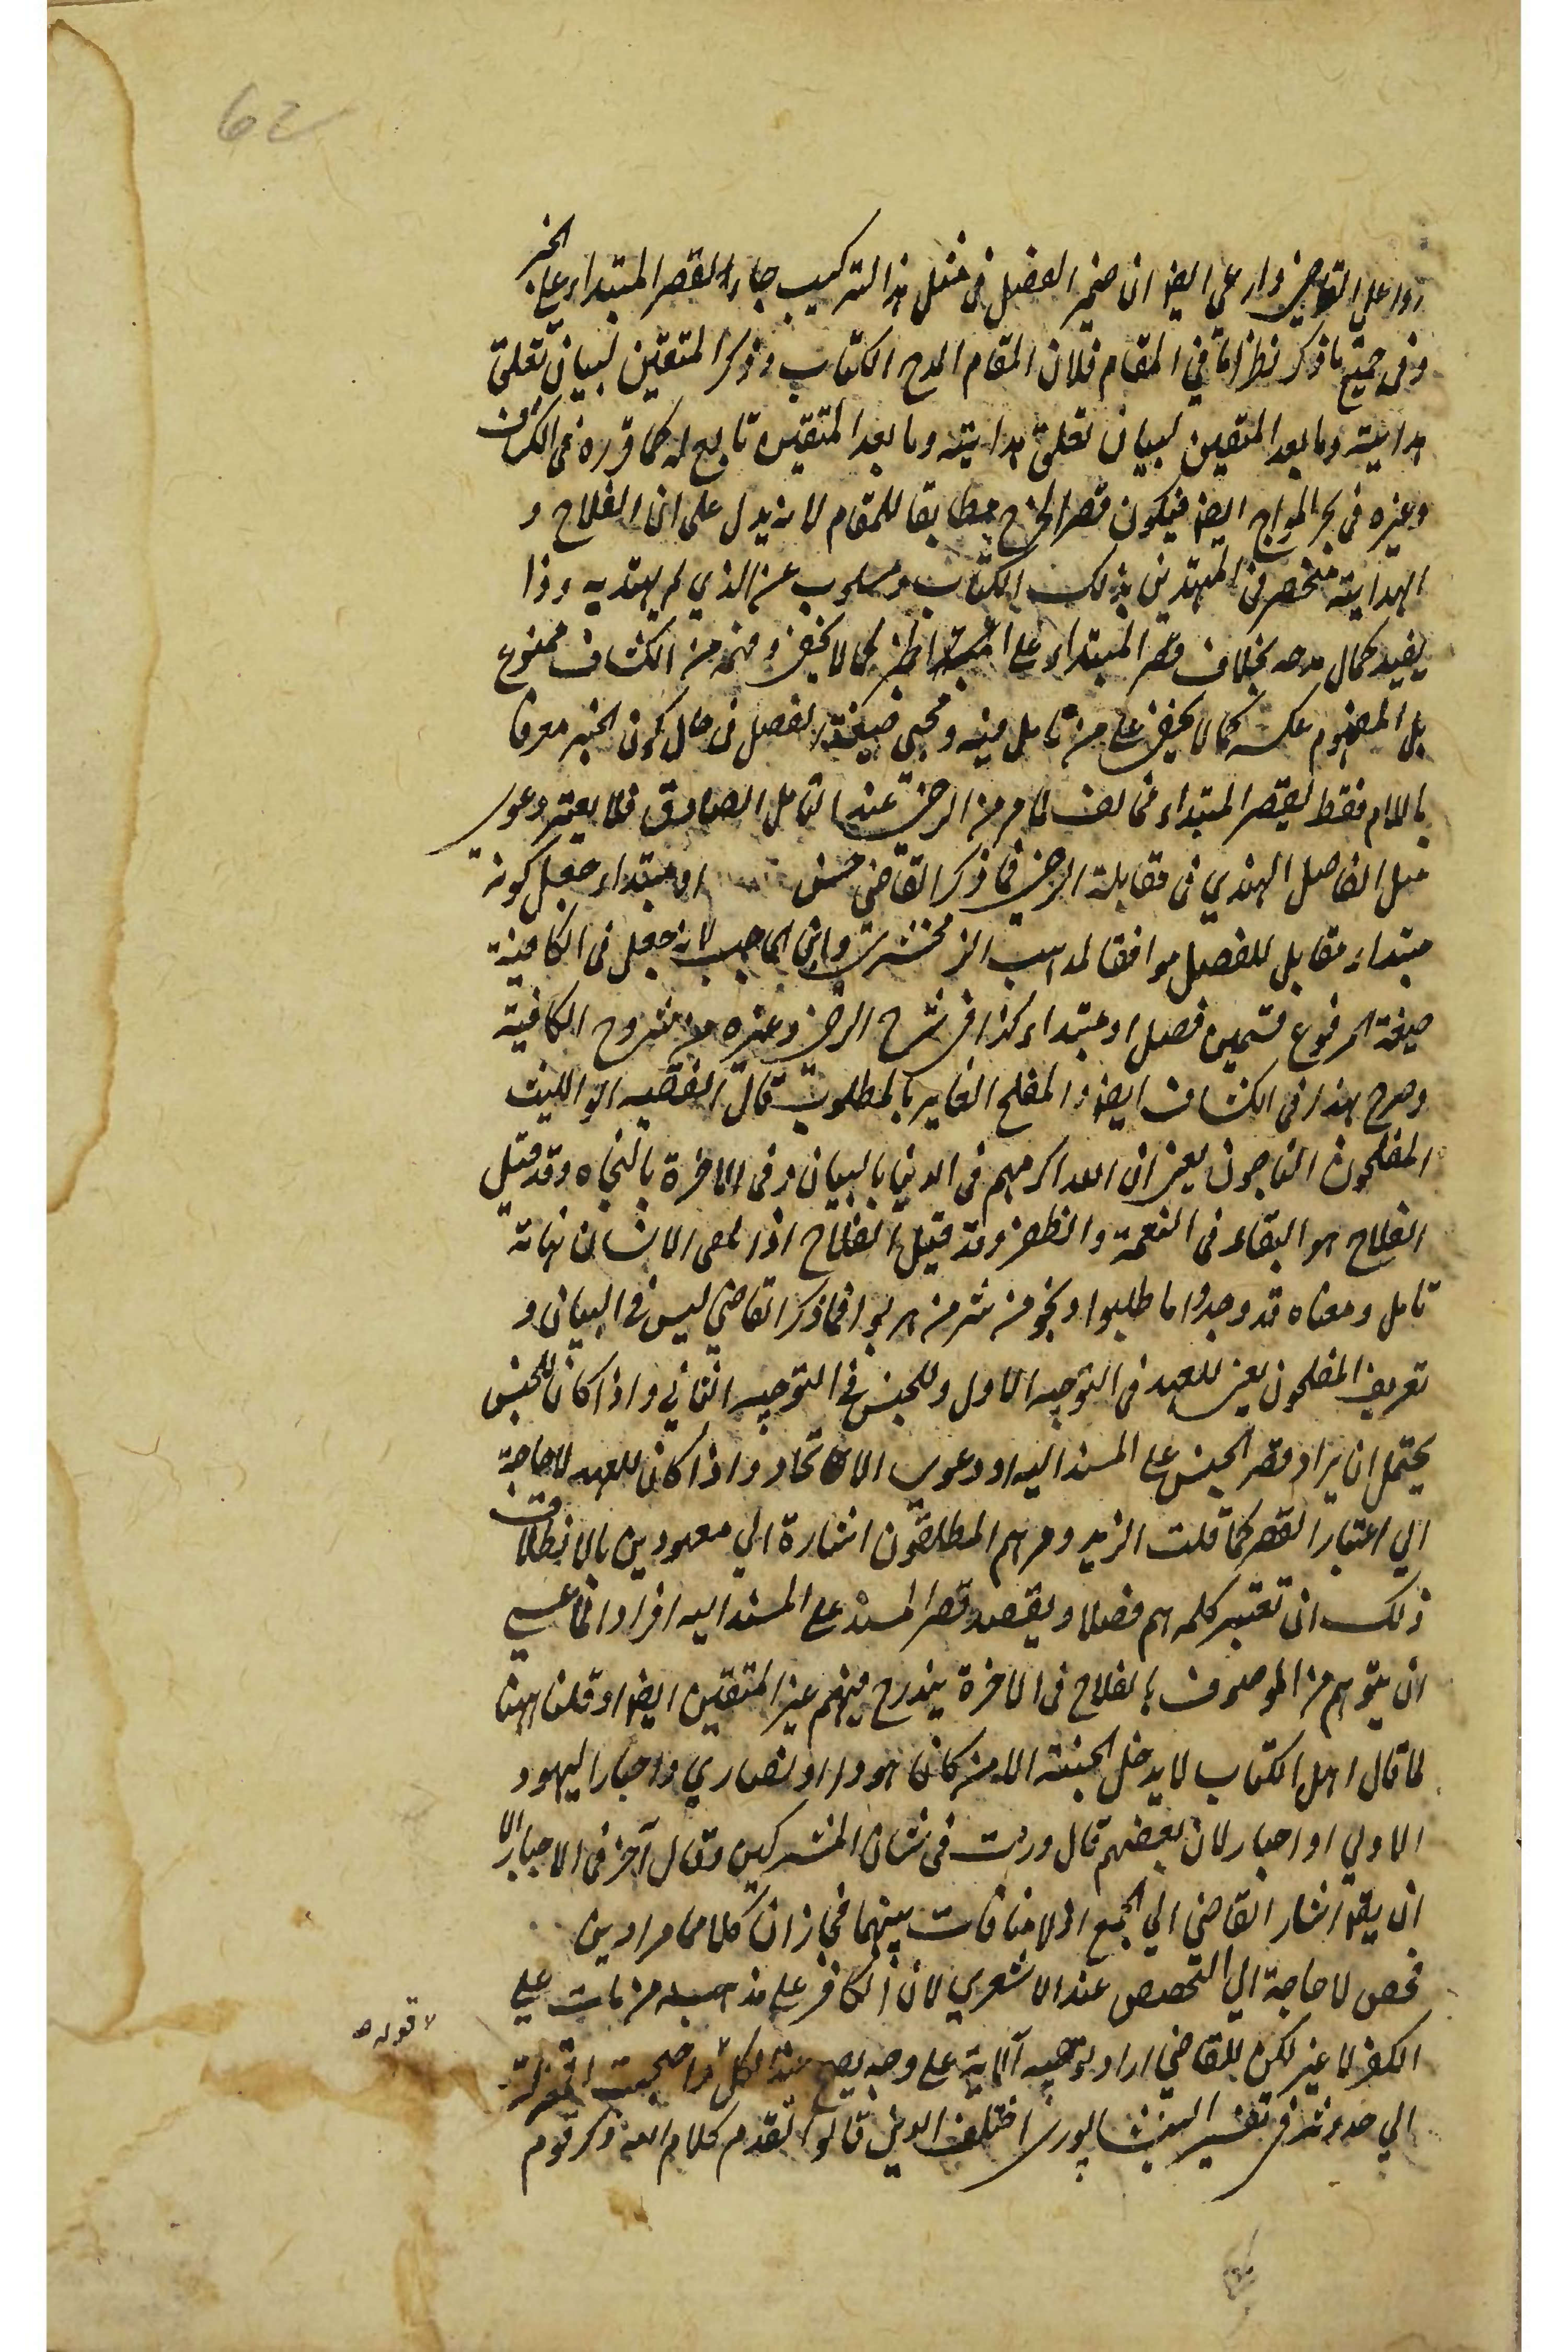 62
ردا على القاضي وارعى ايضا ان ضمير الفصل في مثل هذا التركيب جاء لقصر المبتداء على الخبر
وفى جميع ما ذكر نظر اما في المقام فلان المقام المدح الكتاب وذكر المتقين لبيان تعلق
هدايته وما بعد المتقين لبيان تعلق هدايته وما بعد المتقين تابع له كما قرره في الكشاف
وغيره فى بحر المواج ايضا فيكون قصر المدح مطابقا للمقام لانه يدل على ان الفلاح و
الهداية منحصر في المهتدين بذلك الكتاب ومسلوب عن الذي لم يهتد به وذا
يفيد كمال مدحه بخلاف قصر المبتداء على الخبر كما لا يخفى وفهمه من الكشاف ممنوع
بل المفهوم عكسه كما لا يخفى على من تامل فيه ومجئ صيغة الفصل فى حال كون الخبر معرفا
باللام فقط لقصر المبتداء مخالف لما مر من الرضي عند التامل الصادق فلا يعتبر دعوى
مثل الفاضل الهندي فى مقابلة الرضي فما ذكر القاضي حسن او مبتداء جعل كونه
مبتداء مقابل للفصل موافقا لمذهب الزمخشري وابن الحاجب لانه جعل فى الكافية
صيغة المرفوع قسمين فصل او مبتداء كذا في شرح الرضي وغيره من شروح الكافية
وصرح بهذا فى الكشاف ايضا والمفلح الفايز بالمطلوب قال الفقيه ابو الليث
المفلحون الناجون يعنى ان الله اكرمهم فى الدنيا بالبيان وفى الاخرة بالنجاه وقد قيل
الفلاح هو البقاء فى النعمة والظفر وقد قيل الفلاح اذا بقى الانسان نهاية
تامل ومعناه قد وجدوا ما طلبوا ونجو من شر من هربوا فما ذكر القاضي ليس في البيان و
تعريف المفلحون يعني للعهد فى التوجيه الاول وللجنس في التوجيه الثاني واذا كان للجنس
يحتمل ان يراد قصر الجنس على المسند اليه او دعوى الاتحاد واذا كان للعهد لا حاجة
الي اعتبار القصر كما قلت الزيدون هم المطلقون اشارة الي معهودين بالانطلاق
ذلك ان تعتبر كلمه هم فصلا ويقصد قصر المسند على المسند اليه افرادا لما عسي
ان يتوهم من الموصوف بالفلاح فى الاخرة يندرج فيهم غير المتقين ايضا او قلنا ههنا
لما قال اهل الكتاب لا يدخل الجنة الا من كان هودا او نصاري واحبار اليهود
الاولي او احبار لان بعضهم قال وردت فى شان المشركين وقال آخر فى الاحبار الا
ان يقا اشار القاضي الي الجمع اذ لا منافات بينهما فجاز ان كلاهما مرادين
فحص لا حاجة الي التخصيص عند الاشعري لان الكافر على مذهبه من مات علي
الكفر لا غير لكن للقاضي اراد توجيه آلاية على وجه يصح عند الكل واحتجت المعتزلة
الي حدوثه في تفسير النيشاپوري اختلف الدين قالوا بقدم كلام الله ذكر قوم
لا قوله ص